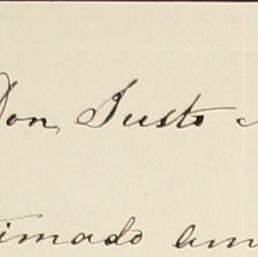 Don Justo
timado am